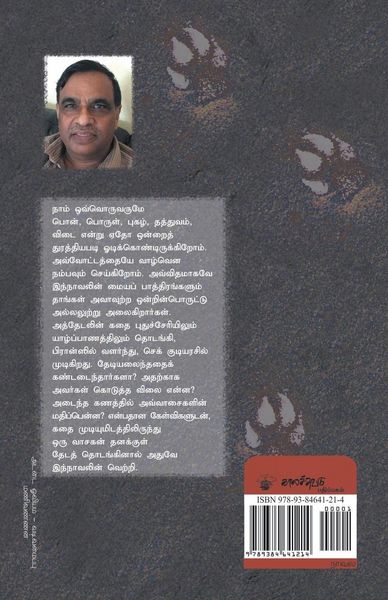 நாம் ஒவ்வொருவருமே
பொன், பொருள், புகழ், தத்துவம்,
விடை என்று ஏதோ ஒன்றைத்
துரத்தியபடி ஓடிக்கொண்டிருக்கிறோம்.
அவ்வோட்டத்தையே வாழ்வென
நம்பவும் செய்கிறோம். அவ்விதமாகவே
இந்நாவலின் மையப் பாத்திரங்களும்
தாங்கள் அவாவுற்ற ஒன்றின்பொருட்டு
அல்லலுற்று அலைகிறார்கள்.
அத்தேடலின் கதை புதுச்சேரியிலும்
யாழ்ப்பாணத்திலும் தொடங்கி,
பிரான்ஸில் வளர்ந்து, செக் குடியரசில்
முடிகிறது. தேடியலைந்ததைக்
கண்டடைந்தார்களா? அதற்காக
அவர்கள் கொடுத்த விலை என்ன?
அடைந்த கணத்தில் அவ்வாசைகளின்
மதிப்பென்ன? என்பதான கேள்விகளுடன்,
கதை முடியுமிடத்திலிருந்து
ஒரு வாசகன் தனக்குள்
தேடத் தொடங்கினால் அதுவே
இந்நாவலின் வெற்றி.
ISBN 978-93-84641-21-4
00001
9 789384 641214